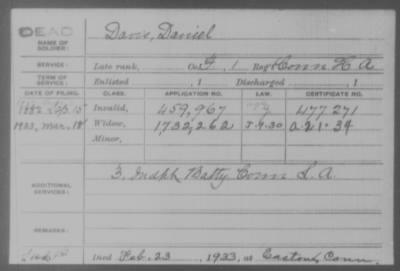 DEAD
NAME OF SOLDIER: Davis, Daniel
SERVICE: Late rank, Co. G, 1 Reg't Conn H A
TERM OF SERVICE: Enlisted , 1 Discharged , 1
DATE OF FILING. CLASS. APPLICATION NO. LAW. CERTIFICATE NO.
1882 Sep. 15 Invalid, 459,967 477 271
1933, Mar. 18 Widow, 1,732,262 5-4-30 a-21-34
Minor,
ADDITIONAL SERVICES: 3. Indpt. Batty Conn L. A.
REMARKS:
Died Feb. 23, 1933, at Easton, Conn.